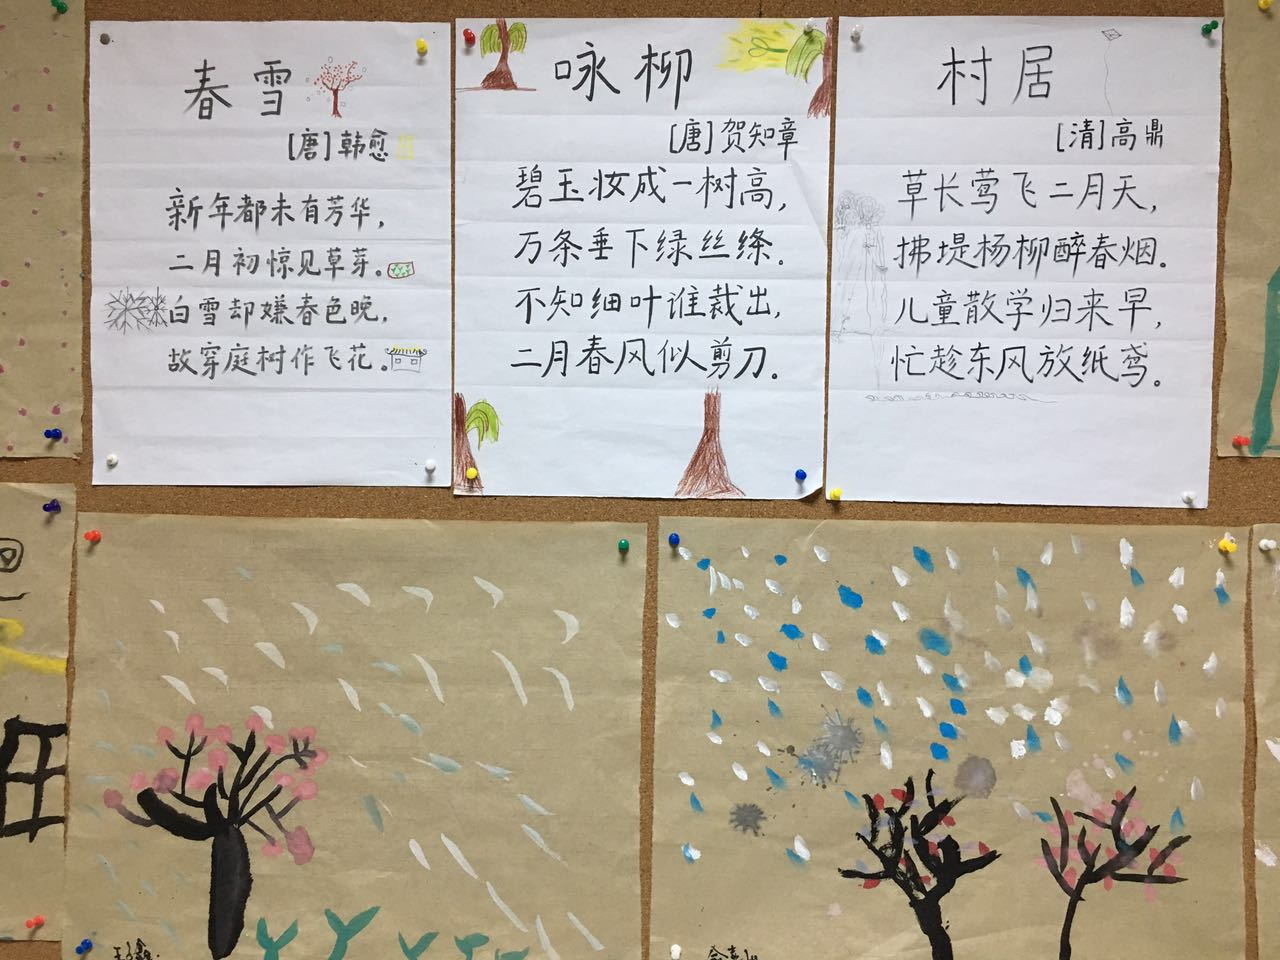 春雪
[唐]韩愈
新年都未有芳华，
二月初惊见草芽。
白雪却嫌春色晚，
故穿庭树作飞花。
咏柳
[唐]贺知章
碧玉妆成一树高，
万条垂下绿丝绦．
不知细叶谁裁出，
二月春风似剪刀．
村居
[清]高鼎
草长莺飞二月天，
拂堤杨柳醉春烟．
儿童散学归来早，
忙趁东风放纸鸢。